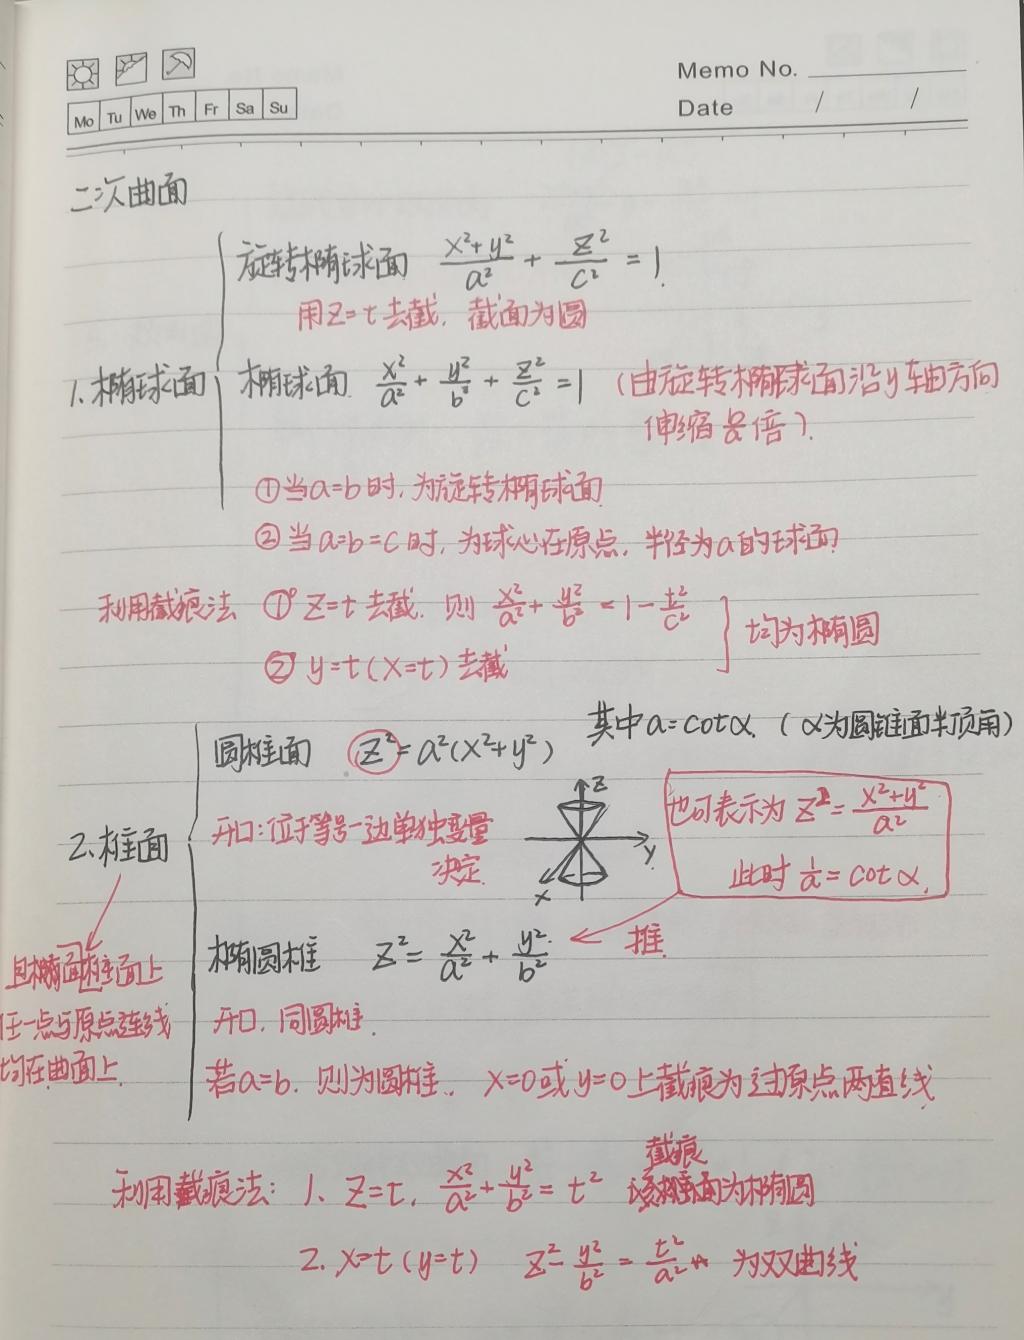 Memo No.
Mo Tu We Th Fr Sa Su
Date / /
二次曲面
旋转椭球面 (x²+y²)/a² + z²/c² = 1.
用z=t去截, 截面为圆
1. 椭球面
椭球面 x²/a² + y²/b² + z²/c² = 1 (由旋转椭球面沿y轴方向
伸缩b/a倍).
①当a=b时, 为旋转椭球面
②当a=b=c时, 为球心在原点, 半径为a的球面
利用截痕法 ①° z=t去截. 则 x²/a² + y²/b² = 1 - t²/c²
② y=t(x=t)去截
均为椭圆
其中a=cotα. (α为圆锥面半顶角)
圆椎面 z²=a²(x²+y²)
也可表示为 z²=(x²+y²)/a²
此时 1/a = cotα.
2、椎面
开口:位于等号一边单独变量
决定.
z
y
x
椭圆椎 z² = x²/a² + y²/b²
推
且椭面椎面上
任一点与原点连线
均在曲面上.
开口, 同圆椎.
若a=b. 则为圆椎. x=0或y=0上截痕为过原点两直线
截痕
利用截痕法: 1、z=t, x²/a² + y²/b² = t² 为椭圆
2. x=t (y=t) z² - y²/b² = t²/a² 为双曲线